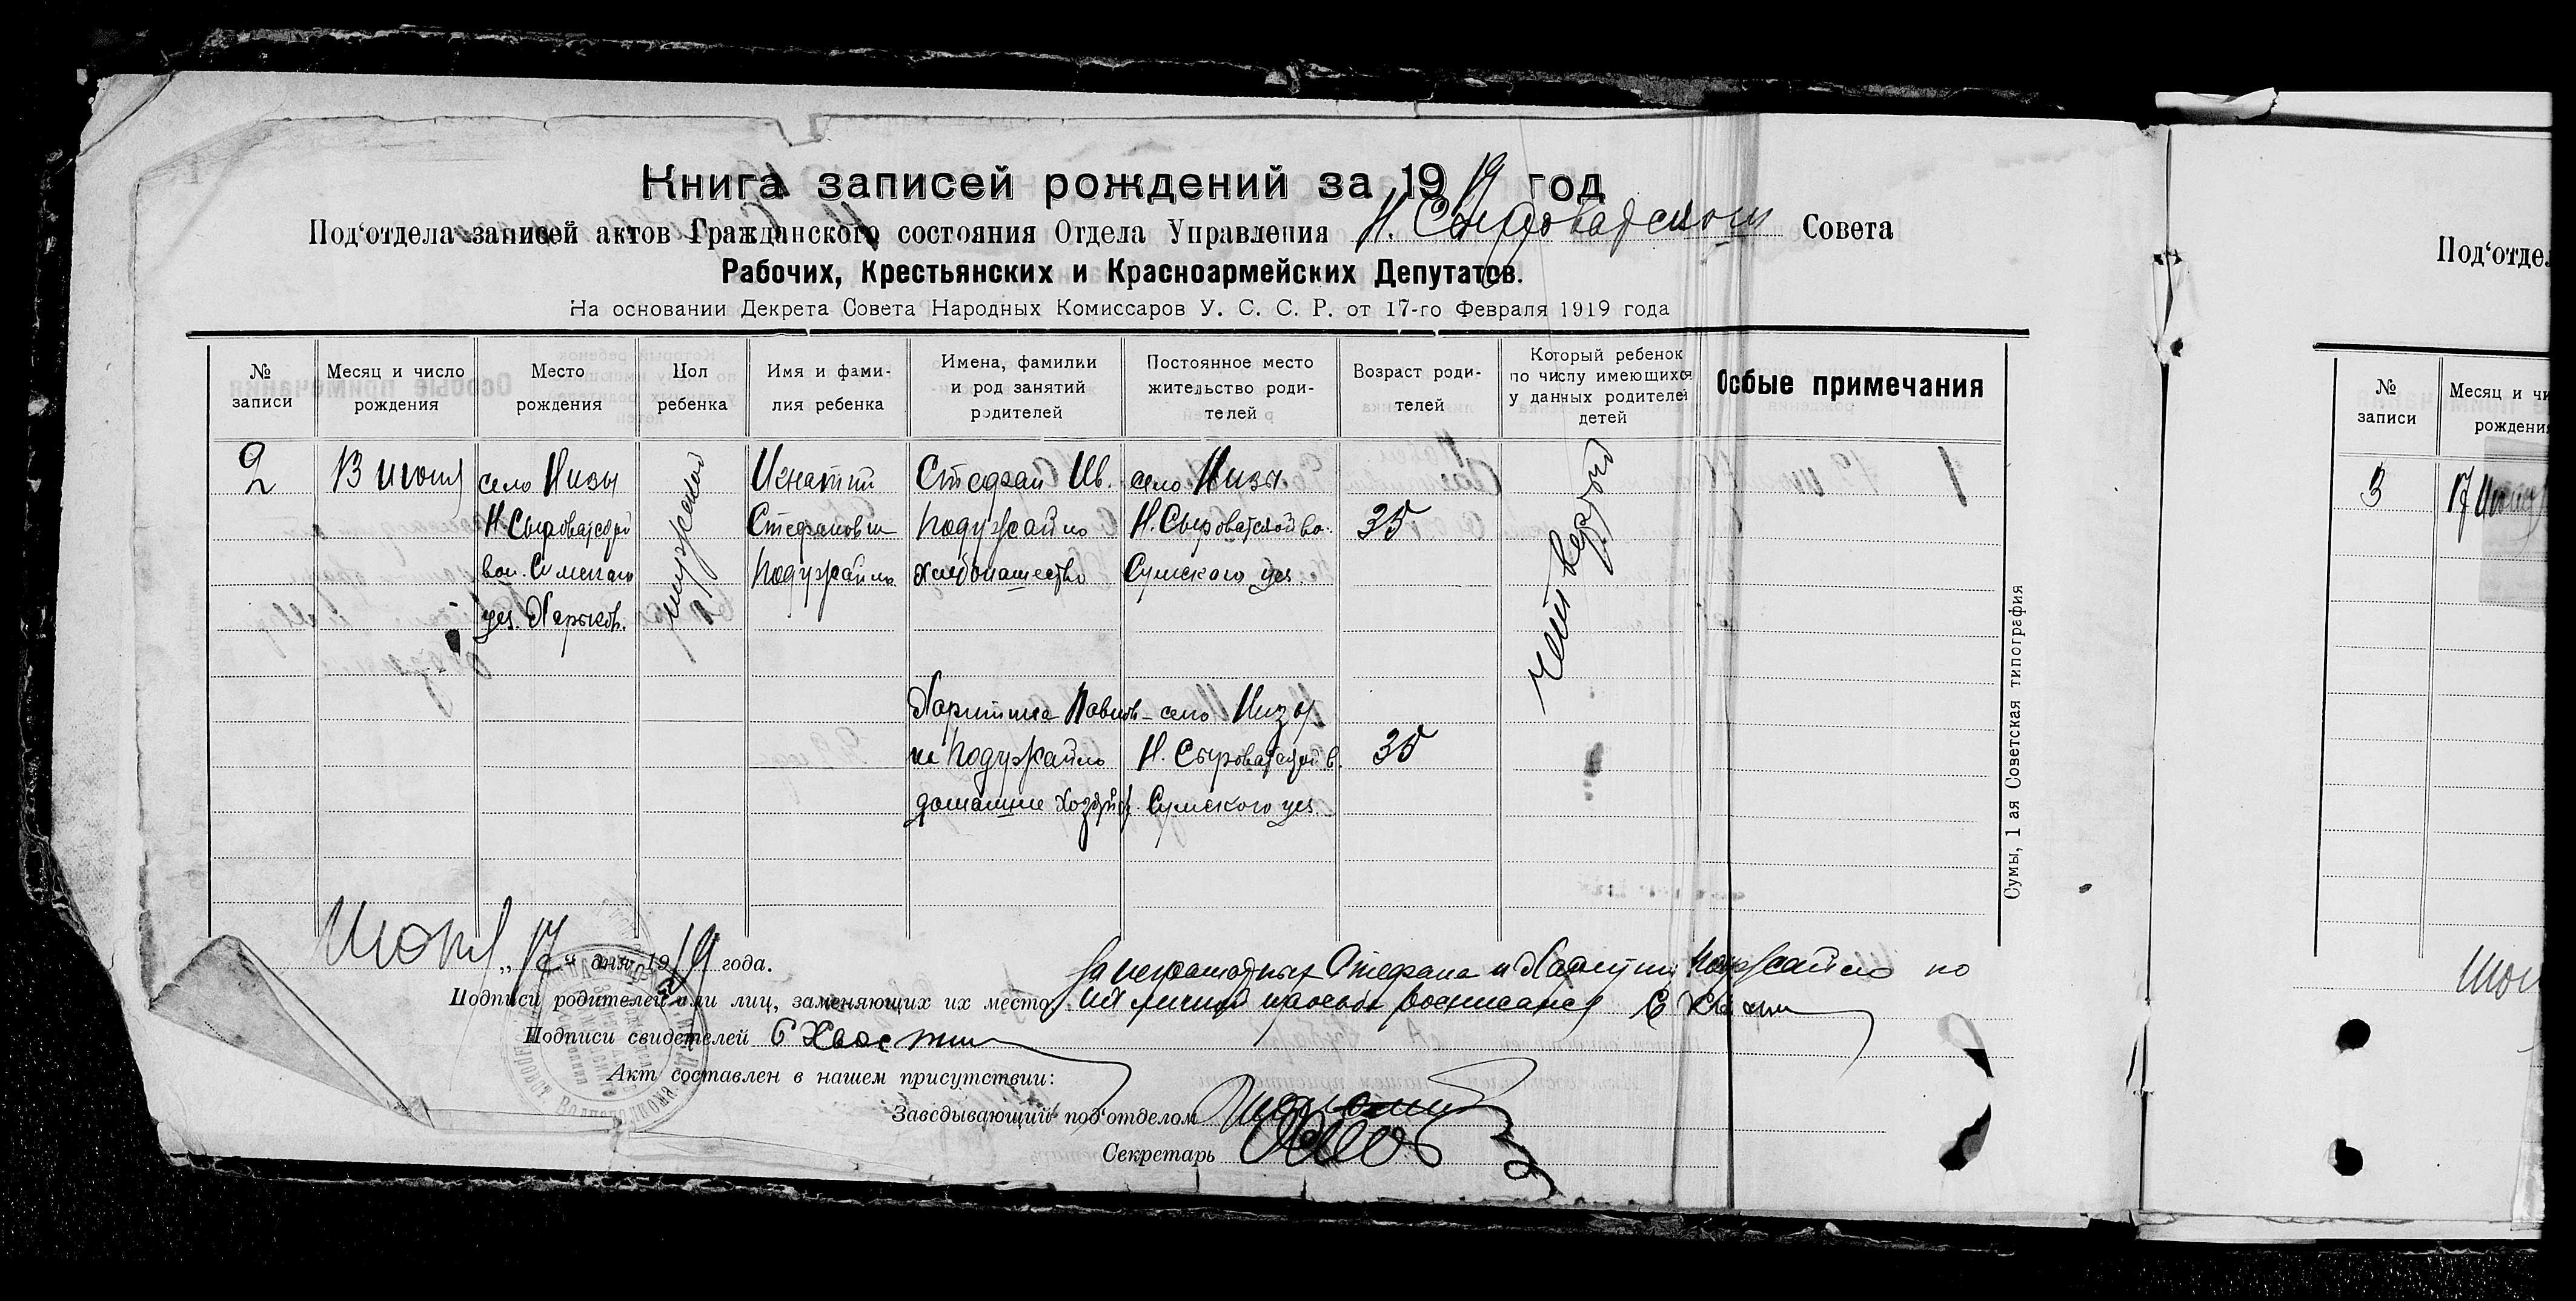 Книга записей рождений за 1919 год
Под‘отдела записей актов Гражданского состояния Отдела Управления Н. Сыроватском Совета
Рабочих, Крестьянских и Красноармейских Депутатов.
На основании Декрета Совета Народных Комиссаров У. С. С. Р. от 17-го Февраля 1919 года
№ записи
Месяц и число рождения
Место рождения
Пол ребенка
Имя и фами-
лия ребенка
Имена, фамилки
и род занятий
родителей
Постоянное место
жительство роди-
телей
Возраст роди-
телей
Который ребенок
по числу имеющихся
у данных родителей
детей
Особые примечания
2
13 июня
село Низы
Н Сыроватской
вол. Сумскаго
уез. Харьков.
мужской
Игнатий
Стефанович
Подужайло
Стефан Ив.
Подужайло
хлебопашество
село Низы
Н. Сыроватской во.
Сумскаго уез.
35
четверой
Харитина Павлов-
на Подужайло
домашнее хозяйст.
село Низы
Н. Сыроватской в.
Сумского уез.
35
Июня „17“ дня 1919 года.
За неграмотных Стефана и Харитины Подужайло по
Подписи родителей или лиц, заменяющих их место их личной просьбе росписался С Хвостин
Подписи свидетелей С Хвостин
Акт составлен в нашем присутствии:
Заведывающий под‘отделом
Секретарь
Сумы, 1 ая Советская типография
Под‘отдел
№ записи
Месяц и чи
рождения
3
17 Июня
Июн